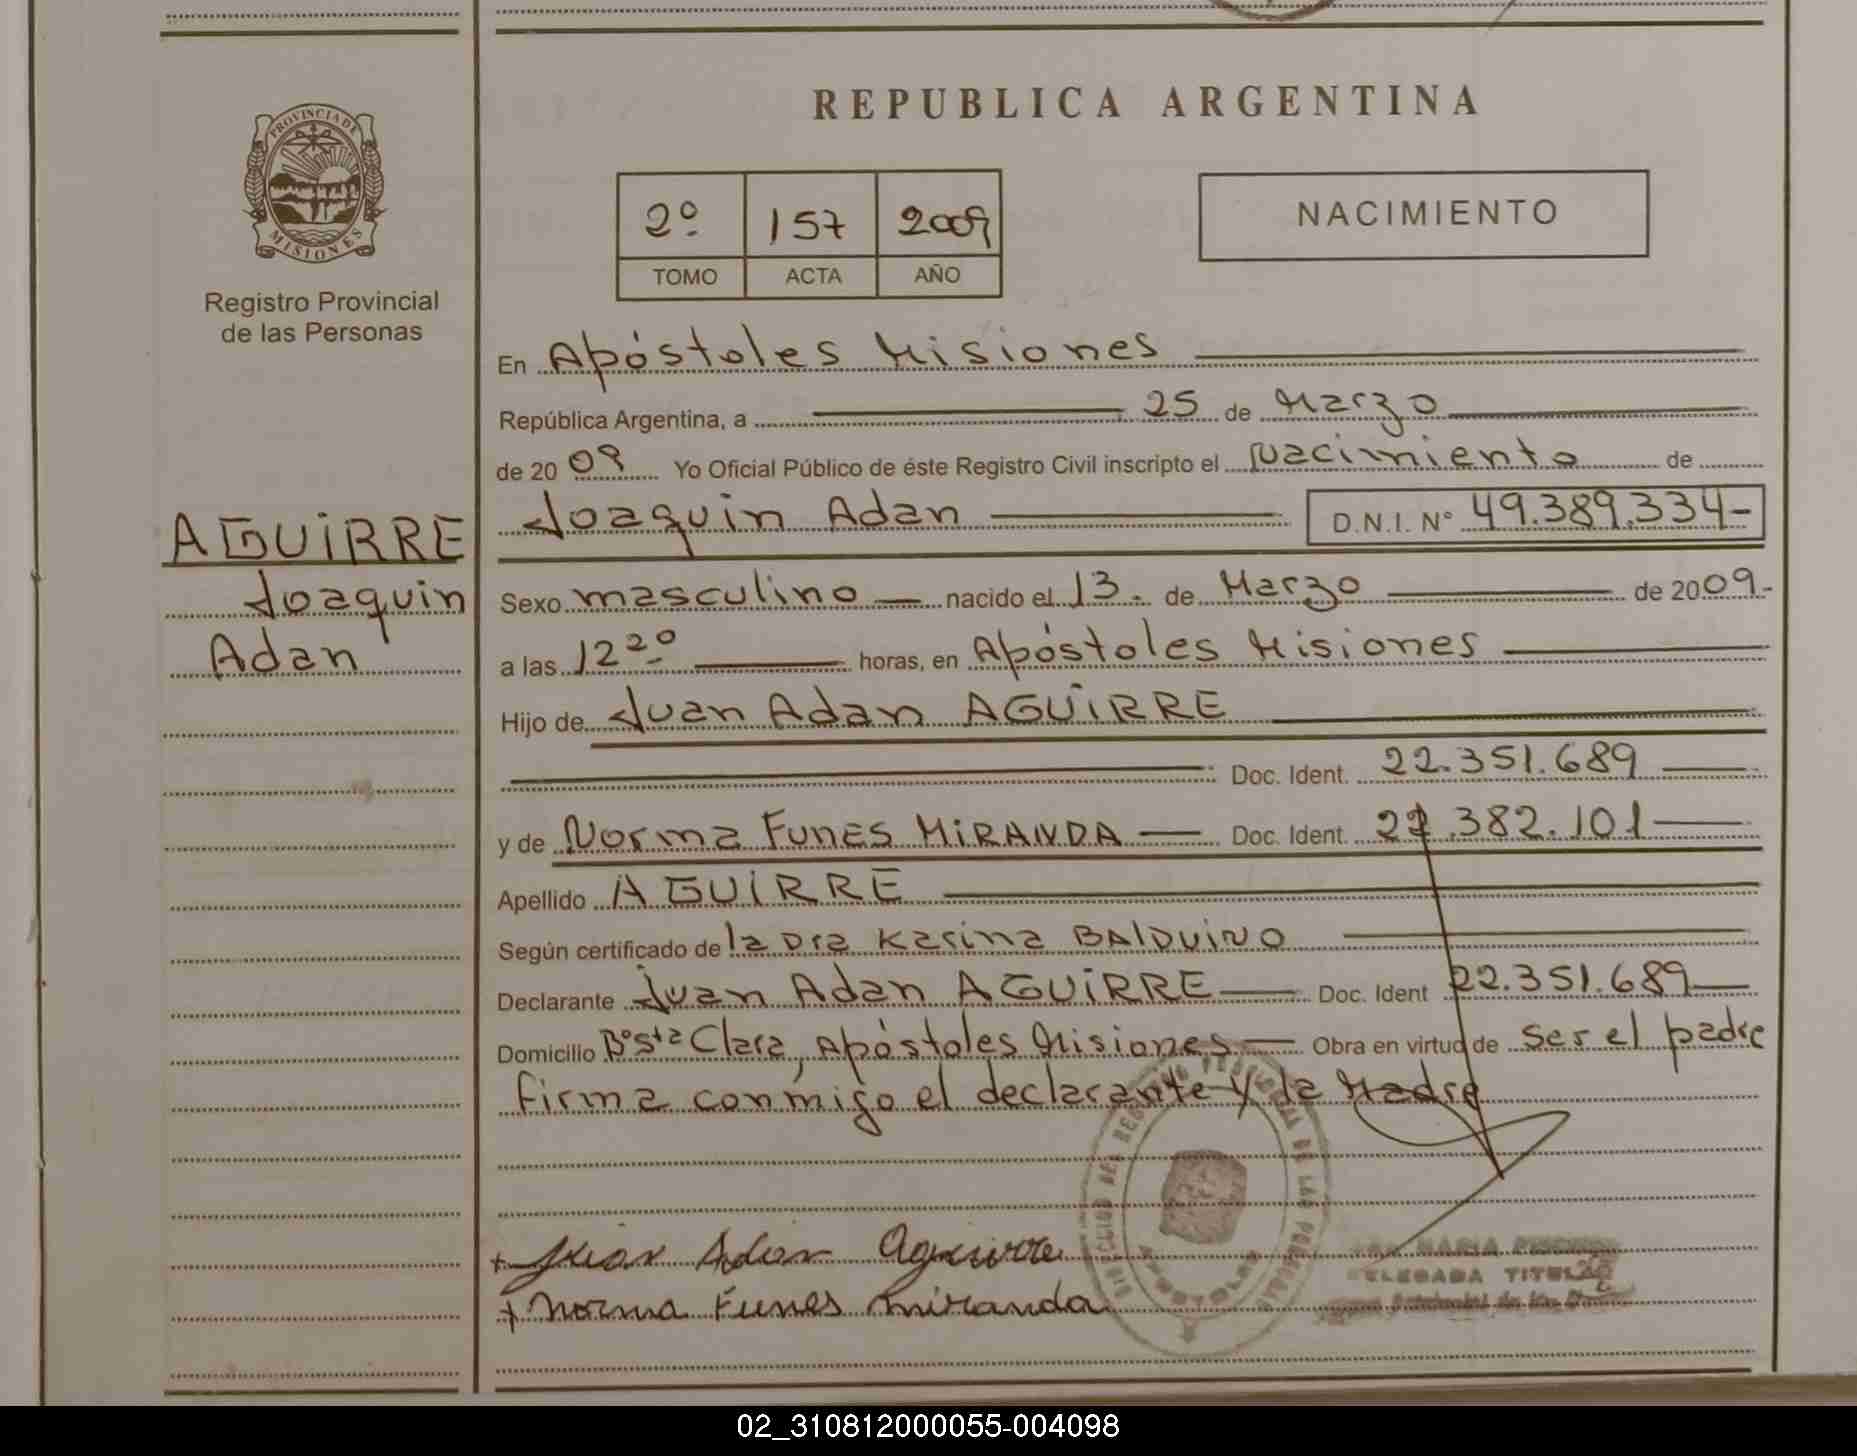 REPUBLICA ARGENTINA
PROVINCIA DE
MISIONES
Registro Provincial
de las Personas
2º 157 2009
TOMO ACTA AÑO
NACIMIENTO
En Apóstoles Misiones
República Argentina, a 25 de Marzo
de 20 09 Yo Oficial Público de éste Registro Civil inscripto el Nacimiento de
Joaquin Adan D.N.I. Nº 49.389.334-
AGUIRRE
Joaquin
Adan
Sexo masculino nacido el 13. de Marzo de 2009.-
a las 12 20 horas, en Apóstoles Misiones
Hijo de Juan Adan AGUIRRE
Doc. Ident. 22.351.689
y de Norma FUNES MIRANDA Doc. Ident. .382.101
Apellido AGUIRRE
Según certificado de la Dra Karina BALDUINO
Declarante Juan Adan AGUIRRE Doc. Ident 22.351.689
Domicilio Bº Sta Clara, Apóstoles Misiones Obra en virtud de ser el padre
firma conmigo el declarante y la Madre
Juan Adan Aguirre
Norma Funes Miranda
MARIA
DELEGADA TITULAR
APOSTOLES
02_310812000055-004098